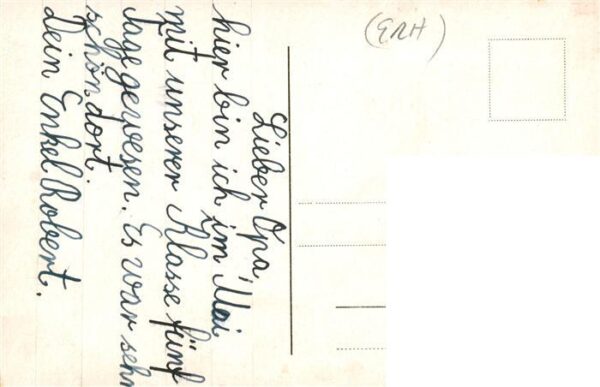 (ERH)
Lieber Opa,
hier bin ich im Mai
mit unserer Klasse fünf
Tage gewesen. Es war sehr
schön dort.
Dein Enkel Robert.